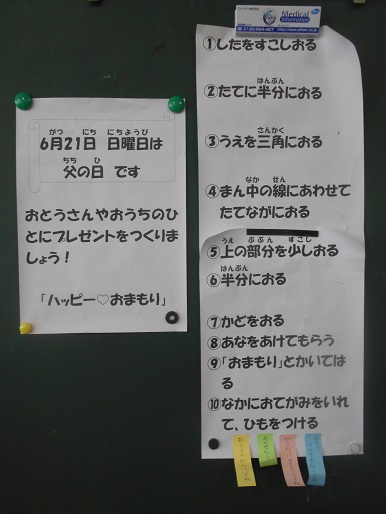 6月21日 日曜日は
がつ にち にちようび
父の日 です
ちち ひ
おとうさんやおうちのひ
とにプレゼントをつくりま
しょう！
「ハッピー♡おまもり」
Medical
Information
①したをすこしおる
②たてに半分におる
はんぶん
③うえを三角におる
さんかく
④まん中の線にあわせて
なか せん
たてながにおる
⑤上の部分を少しおる
うえ ぶぶん すこし
⑥半分におる
はんぶん
⑦かどをおる
⑧あなをあけてもらう
⑨「おまもり」とかいては
る
⑩なかにおてがみをいれ
て、ひもをつける